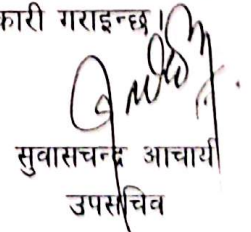 कारी गराइन्छ।
सुवासचन्द्र आचार्य
उपसचिव